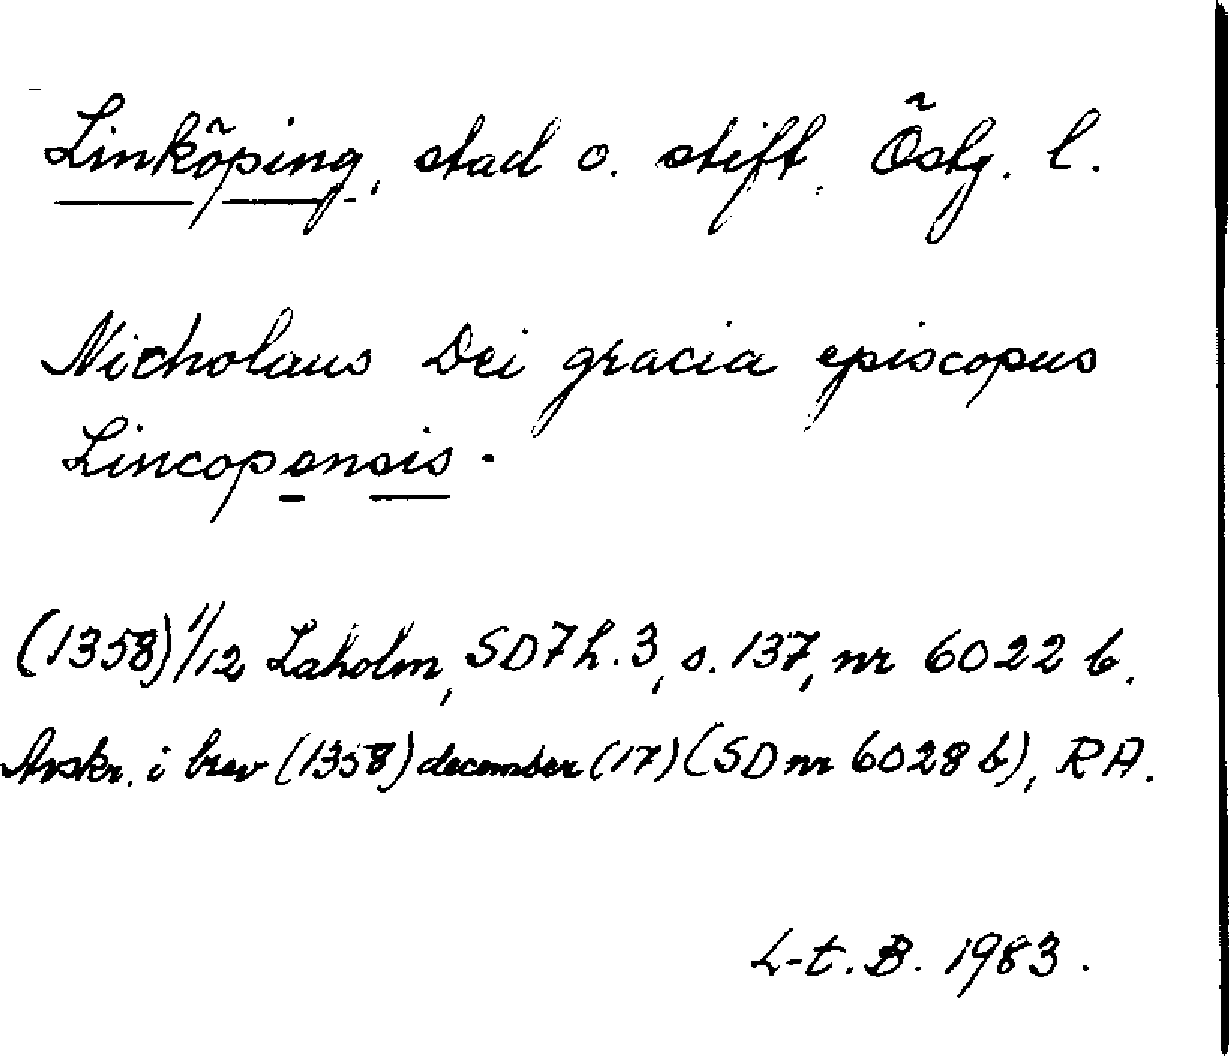 Linköping, stad o. stift. Östg. l.
Nicholaus Dei gracia episcopus
Lincopensis.
(1358) 1/12 Laholm, SD7 h. 3, s. 137, nr 6022 b.
Avskr. i brev (1358) december (17) (SD nr 6028 b), RA.
L-t. B. 1983.